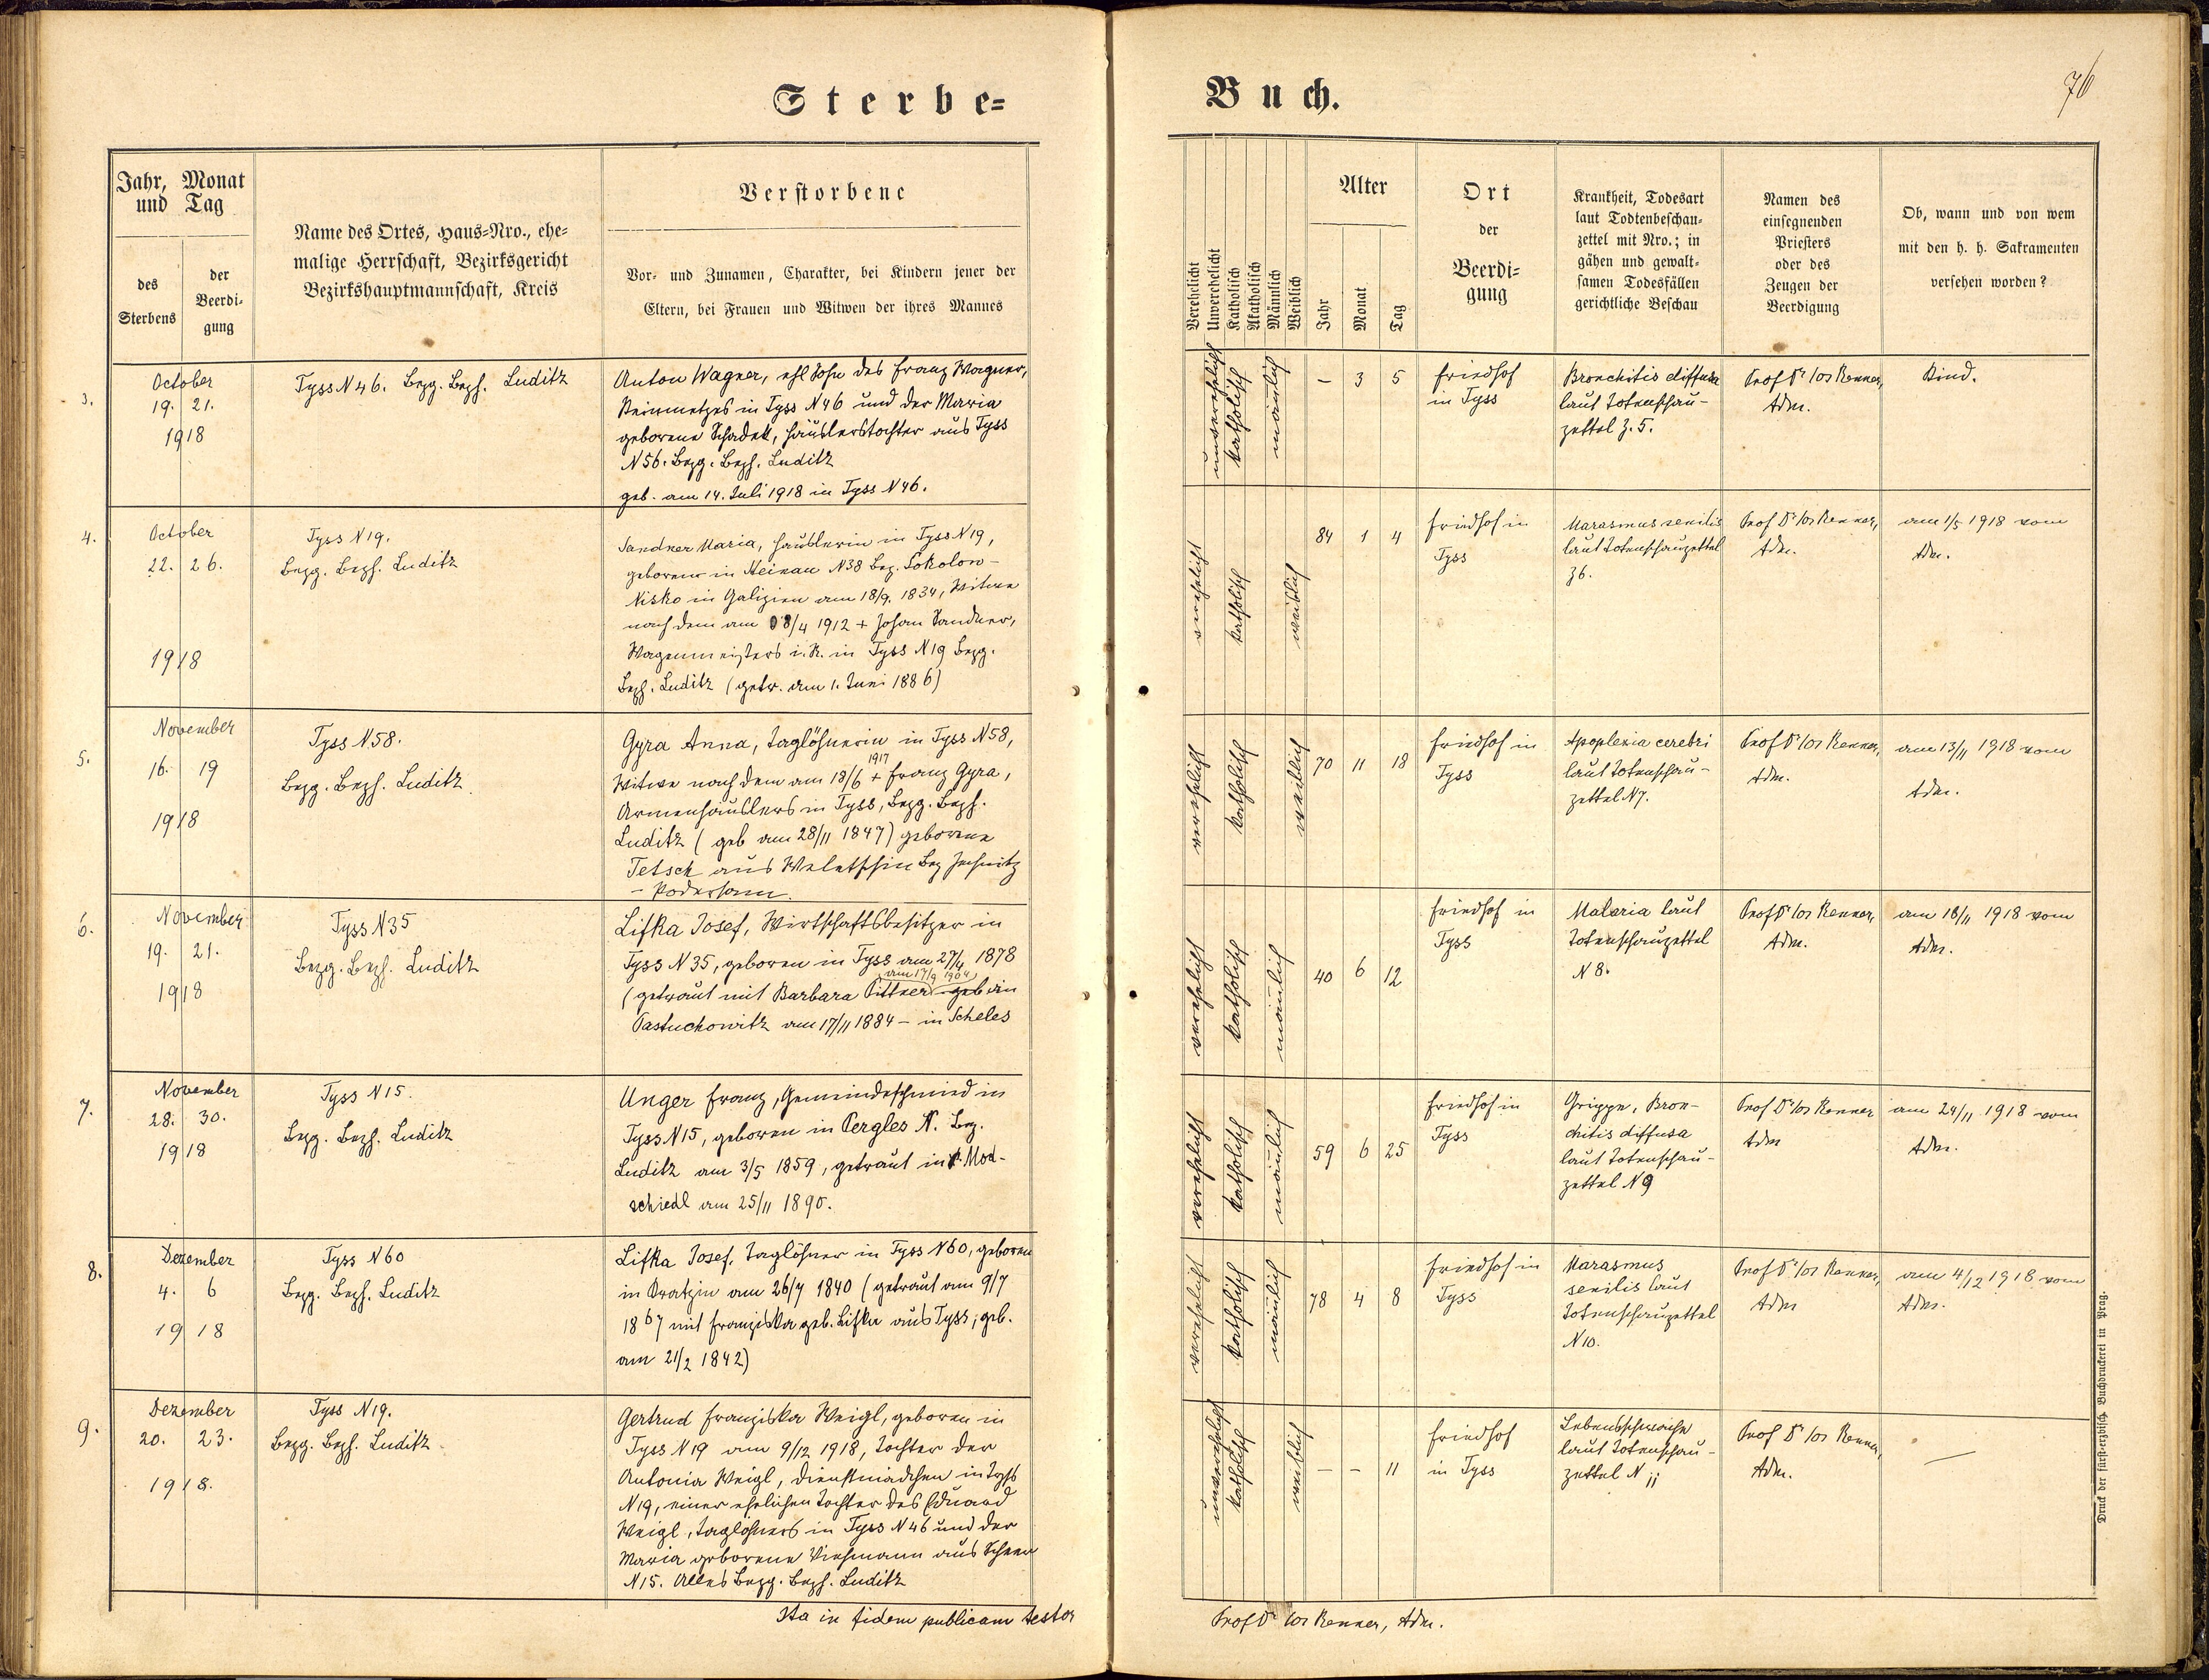 Sterbe-
Buch.
76
Jahr, Monat
und Tag
des
Sterbens
der
Beerdi-
gung
Name des Ortes, Haus-Nro., ehe-
malige Herrschaft, Bezirksgericht
Bezirkshauptmannschaft, Kreis
Verstorbene
Vor- und Zunamen, Charakter, bei Kindern jener der
Eltern, bei Frauen und Witwen der ihres Mannes
Verehelicht
Unverehelicht
Katholisch
Akatholisch
Männlich
Weiblich
Alter
Jahr
Monat
Tag
Ort
der
Beerdi-
gung
Krankheit, Todesart
laut Todtenbeschau-
zettel mit Nro.; in
gähen und gewalt-
samen Todesfällen
gerichtliche Beschau
Namen des
einsegnenden
Priesters
oder des
Zeugen der
Beerdigung
Ob, wann und von wem
mit den h. h. Sakramenten
versehen worden?
3.
October
19. 21.
1918
Tyss N 46. Bezg. Bezh. Luditz
Anton Wagner, ehl Sohn des Franz Wagner,
Steinmetzes in Tyss N 46 und der Maria
geborene Schadek, Häuslerstochter aus Tyss
N 56. Bezg. Bezh. Luditz
geb. am 14. Juli 1918 in Tyss N 46.
unverehelicht
katholisch
männlich
– 3 5
Friedhof
in Tyss
Bronchitis diffusa
laut Totenschau-
zettel Z. 5.
Prof Dr Jos Renner,
Adm.
Kind.
4.
October
22. 26.
1918
Tyss N 19.
Bezg. Bezh. Luditz
Sandner Maria, Häuslerin in Tyss N 19,
geboren in Steinau N 38 Bez. Sokolow-
Nisko in Galizien am 18/9. 1834, Witwe
nach dem am 8/4 1912 + Johan Sandner,
Wagenmeisters i. R. in Tyss N 19 Bezg.
Bezh. Luditz (getr. am 1. Juni 1886)
verehelicht
katholisch
weiblich
84 1 4
Friedhof in
Tyss
Marasmus senilis
laut Totenschauzettel
Z 6.
Prof Dr Jos Renner,
Adm.
am 1/5 1918 vom
Adm.
5.
November
16. 19
1918
Tyss N 58.
Bezg. Bezh. Luditz.
Gyra Anna, Taglöhnerin in Tyss N 58,
1917
Witwe nach dem am 18/6 + Franz Gyra,
Armenhäuslers in Tyss, Bezg. Bezh.
Luditz (geb am 28/11 1847) geborene
Tetsch aus Weletschin Bez Jechnitz
- Podersam.
verehelicht
katholisch
weiblich
70 11 18
Friedhof in
Tyss
Apoplexia cerebri
laut Totenschau-
zettel N 7.
Prof Dr Jos Renner,
Adm.
am 13/11 1918 vom
Adm.
6.
November
19. 21.
1918
Tyss N 35
Bezg. Bezh. Luditz
Lifka Josef, Wirtschaftsbesitzer in
Tyss N 35, geboren in Tyss am 27/4 1878
am 17/9 1904
(getraut mit Barbara Pittner geb in
Pastuchowitz am 17/11 1884 – in Scheles
verehelicht
katholisch
männlich
40 6 12
Friedhof in
Tyss
Malaria laut
Totenschauzettel
N 8.
Prof Dr Jos Renner,
Adm.
am 18/11 1918 vom
Adm.
7.
November
28. 30.
1918
Tyss N 15.
Bezg. Bezh. Luditz
Unger Franz, Gemeindeschmied in
Tyss N 15, geboren in Pergles N. Bez.
Luditz am 3/5 1859, getraut in Mod-
schiedl am 25/11 1890.
verehelicht
katholisch
männlich
59 6 25
Friedhof in
Tyss
Grippe, Bron-
chitis diffusa
laut Totenschau-
zettel N 9
Prof Dr Jos Renner
Adm
am 24/11 1918 vom
Adm.
8.
Dezember
4. 6
1918
Tyss N 60
Bezg. Bezh. Luditz
Lifka Josef, Taglöhner in Tyss N 60, geboren
in Dratzin am 26/7 1840 (getraut am 9/7
1867 mit Franziska geb. Lifka aus Tyss; geb.
am 21/2 1842)
verehelicht
katholisch
männlich
78 4 8
Friedhof in
Tyss
Marasmus
senilis laut
Totenschauzettel
N 10.
Prof Dr Jos Renner,
Adm
am 4/12 1918 vom
Adm.
9.
Dezember
20. 23.
1918.
Tyss N 19.
Bezg. Bezh. Luditz
Gertrud Franziska Weigl, geboren in
Tyss N 19 am 9/12 1918, Tochter der
Antonia Weigl, Dienstmädchen in Tyss
N 19, einer ehelichen Tochter des Eduard
Weigl, Taglöhners in Tyss N 46 und der
Maria geborene Viehmann aus
N 15. Alles Bezg. Bezh. Luditz
unverehelicht
katholisch
weiblich
– – 11
Friedhof
in Tyss
Lebensschwäche
laut Totenschau-
zettel N 11
Prof Dr Jos Renner,
Adm.
—
Ita in fidem publicam testor
Prof Dr Jos Renner, Adm.
Druck der fürst-erzbisch. Buchdruckerei in Prag.